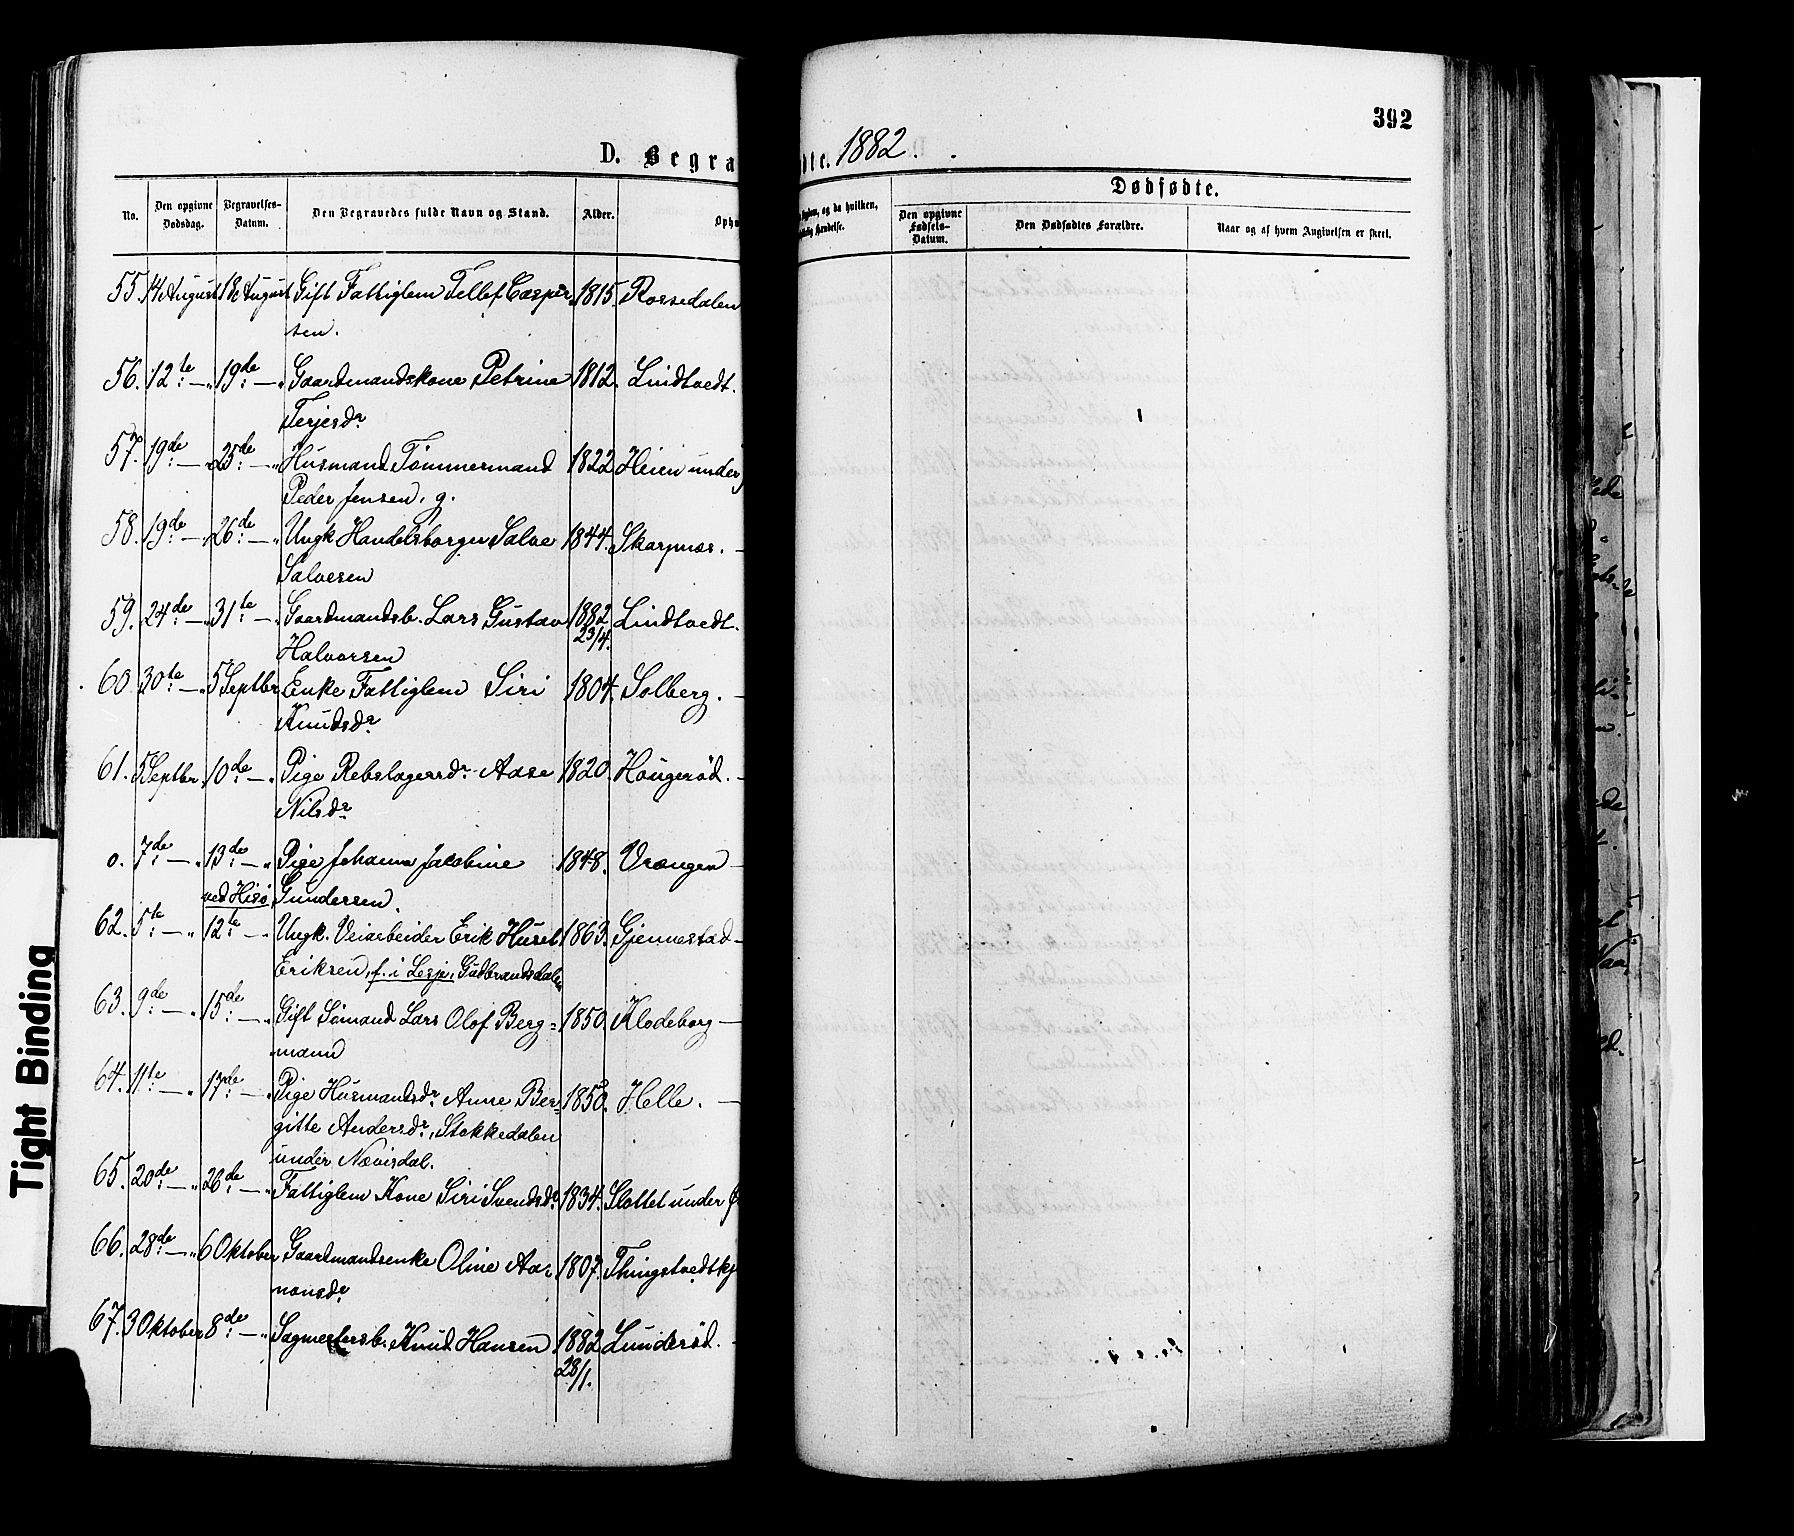 392
D. Begra
dte. 1882.
No.
Den opgivne Dødsdag.
Begravelses-Datum.
Den Begravedes fulde Navn og Stand.
Alder.
Opho
Sygdom, og da hvilken,
Hændelse.
Dødfødte.
Den opgivne Fødsels-Datum.
Den Dødfødtes Forældre.
Naar og af hvem Angivelsen er skeet.
55. 14 August 18 August Gift Fattiglem Tellef Casper 1815. Rossedalen
sen.
56. 12te — " 19de — " Gaardmandskone Petrine 1812. Lindtvedt.
Terjesdr
57. 19de — " 25de — " Husmand Tømmermand 1822 Heien under
Peder Jensen, g.
58. 19de — " 26de — " Ungk Handelsborger Salve 1844. Skarpnæs. —
Salvesen
59. 24de — " 31te — " Gaardmandsb. Lars Gustav 1882 Lindtvedt.
Halvorsen 23/4.
60. 30te — " 5 Septbr Enke Fattiglem Siri 1804. Solberg. —
Knudsdr
61. 5 Septbr 10de — " Pige Rebslagersdr Aase 1820. Hougerød. —
Nilsdr
0. 7de — " 13de — " Pige Johanna Jacobine 1848. Vrængen —
ved Hisø Gundersen.
62. 5te — " 12te — " Ungk. Veiarbeider Erik Huset 1863. Gjennestad —
Eriksen, f. i Lesje, Gudbrandsdalen
63. 9de — " 15de — " Gift Sømand Lars Olof Berg= 1850. Klodeborg —
mann
64. 11te — " 17de — " Pige Husmandsdr Anne Ber= 1850. Helle. —
gitte Andersdr, Stokkedalen
under Nævisdal.
65. 20de — " 26de — " Fattiglem Kone Siri Svendsdr 1834. Slottet under
66. 28de — " 6 Oktober Gaardmandsenke Oline Aa= 1807. Thingstvedtkj
nonsdr
67. 3 Oktober 8de — " Sagmestersb. Knud Hansen 1882 Lunderød. —
28/1.
Tight Binding